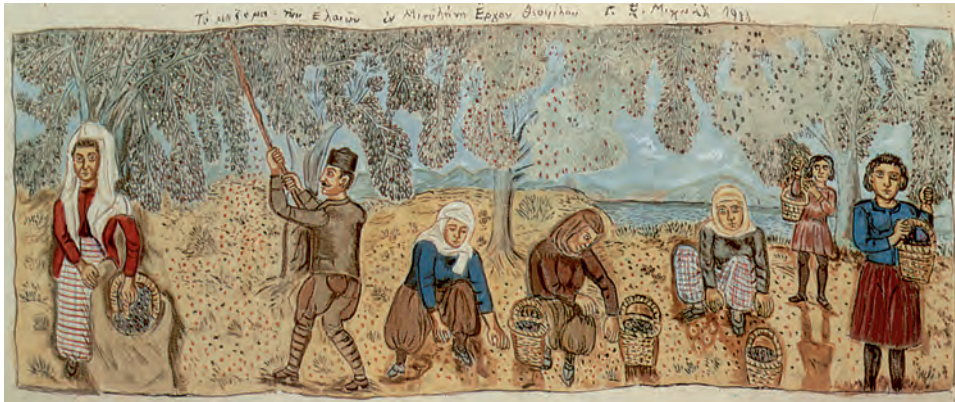 Τό μάζεμα των Ελαιών εν Μιτυλήνη Έργον Θεοφίλου Γ. Χ. Μιχαήλ 1933